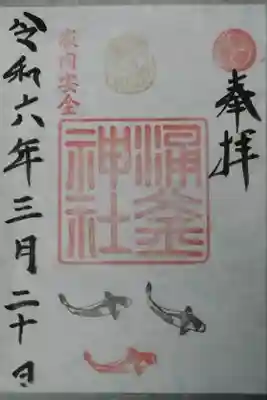 奉拝
涌釜
神社
家内安全
令和六年三月二十日